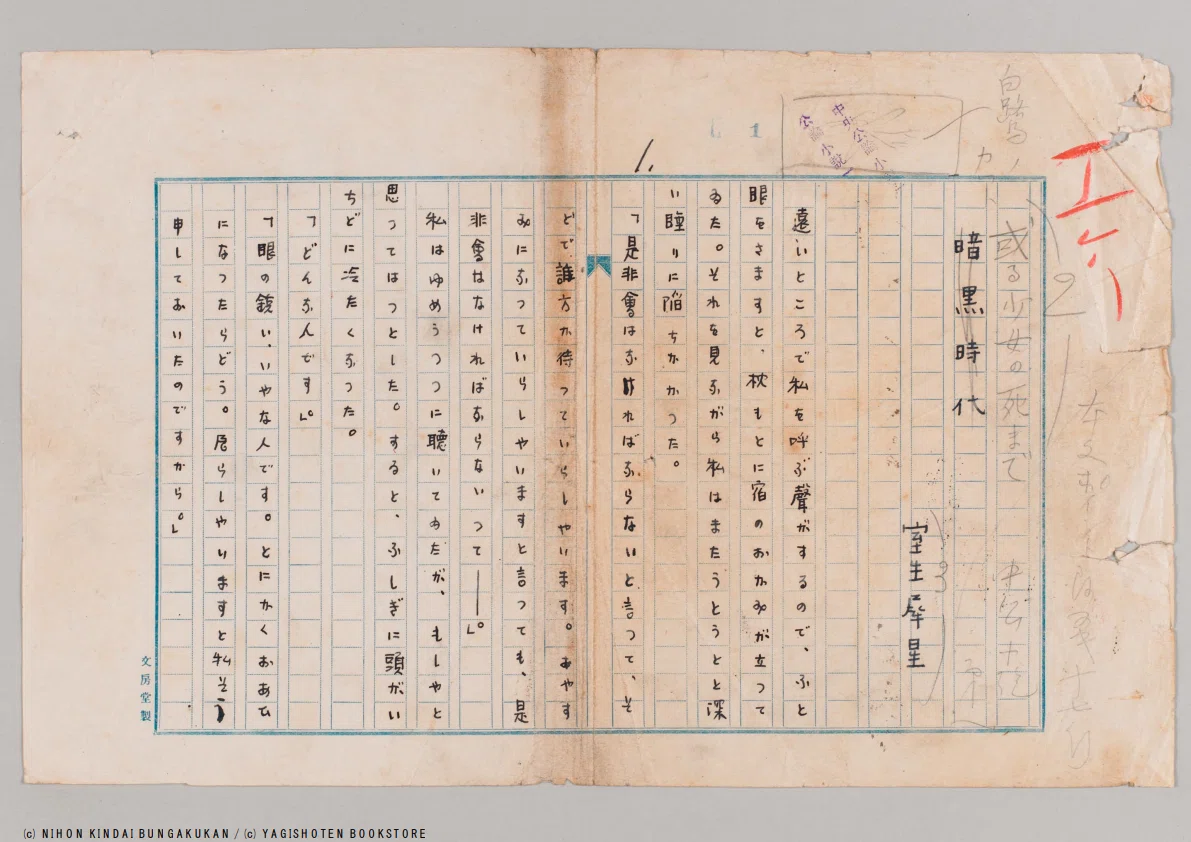 或る少女の死まで
暗黒時代
室生犀星
1.
遠いところで私を呼ぶ聲がするので、ふと
眼をさますと、枕もとに宿のおかみが立つて
ゐた。それを見ながら私はまたうとうとと深
い睡りに陥ちかかつた。
「是非會はなければならないと言つて、そ
どで誰方か待つていらしやいます。おやす
みになつていらしやいますと言つても、是
非會はなければならないつて――」。
私はゆめうつつに聴いてゐたが、もしやと
思つてはつとした。すると、ふしぎに頭がい
ちどに冷たくなつた。
「どんな人です」。
「眼の鋭い、いやな人です。とにかくおあひ
になつたらどう。居らしやいますと私そう
申しておいたのですから。」
中央公論小説
公論小説
文房堂製
(c) NIHON KINDAI BUNGAKUKAN / (c) YAGISHOTEN BOOKSTORE